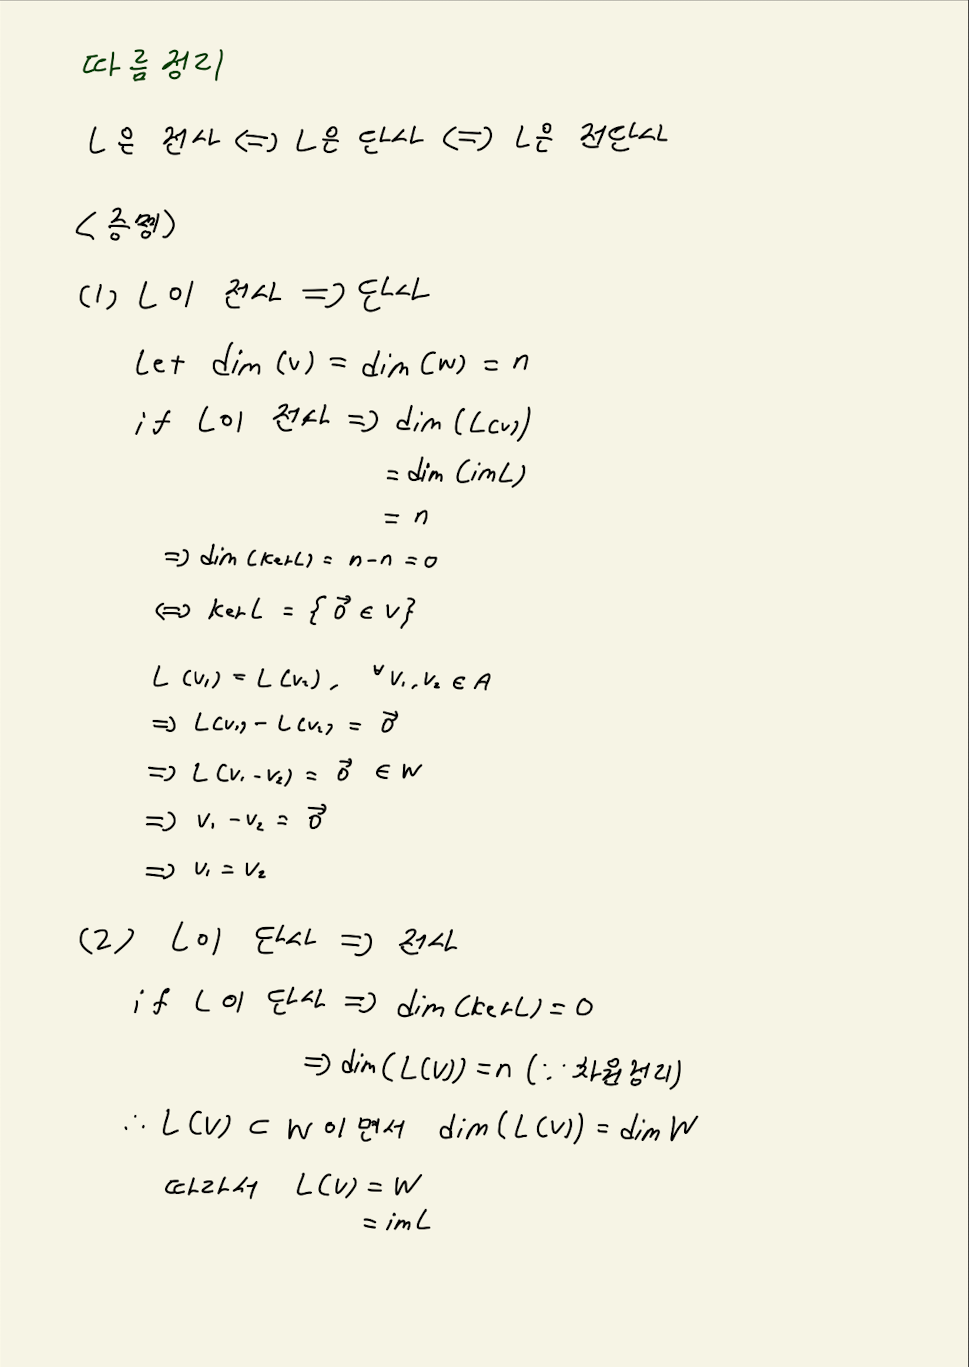 따름정리
L은 전사 <=> L은 단사 <=> L은 전단사
<증명>
(1) L이 전사 => 단사
Let dim(V) = dim(W) = n
if L이 전사 => dim(L(V))
= dim(imL)
= n
=> dim(kerL) = n-n = 0
<=> kerL = {0⃗ ∈ V}
L(v₁) = L(v₂), ∀v₁, v₂ ∈ A
=> L(v₁) - L(v₂) = 0⃗
=> L(v₁ - v₂) = 0⃗ ∈ W
=> v₁ - v₂ = 0⃗
=> v₁ = v₂
(2) L이 단사 => 전사
if L이 단사 => dim(kerL) = 0
=> dim(L(V)) = n (∵ 차원정리)
∴ L(V) ⊂ W 이면서 dim(L(V)) = dim W
따라서 L(V) = W
= imL